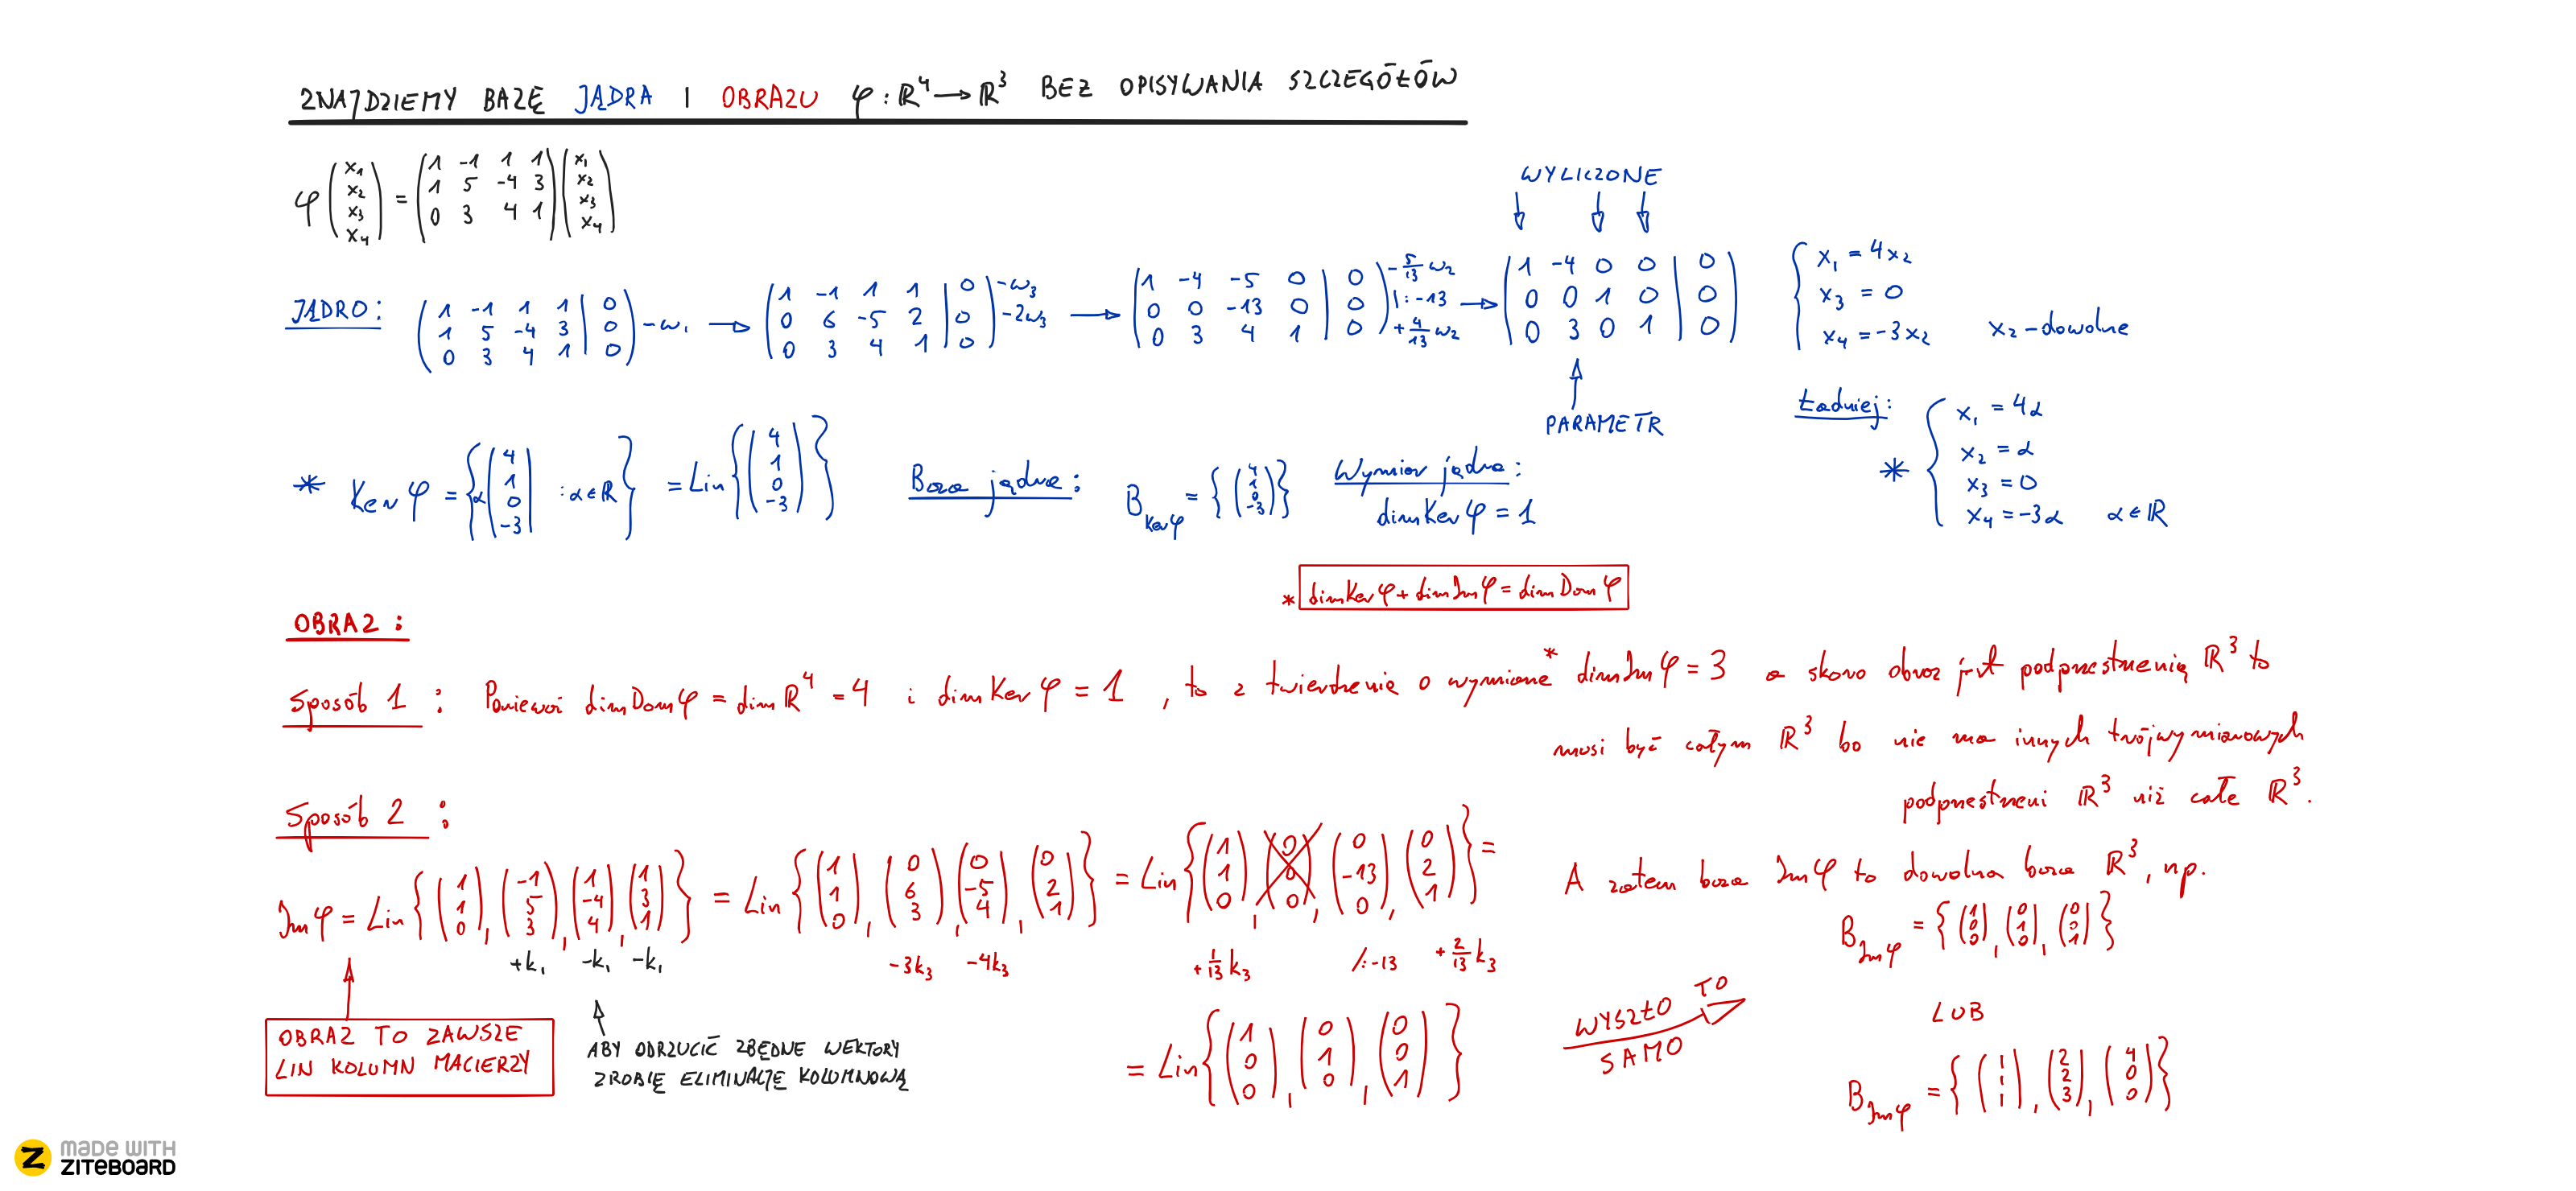 ZNAJDZIEMY BAZĘ JĄDRA I OBRAZU φ: ℝ⁴ → ℝ³ BEZ OPISYWANIA SZCZEGÓŁÓW
φ (x₁ x₂ x₃ x₄) = (1 -1 1 1; 1 5 -4 3; 0 3 4 1) (x₁ x₂ x₃ x₄)
WYLICZONE
JĄDRO: (1 -1 1 1 | 0; 1 5 -4 3 | 0; 0 3 4 1 | 0) -w₁ → (1 -1 1 1 | 0; 0 6 -5 2 | 0; 0 3 4 1 | 0) -w₃ -2w₃ → (1 -4 -5 0 | 0; 0 0 -13 0 | 0; 0 3 4 1 | 0) -5/13 w₂ |:-13 +4/13 w₂ → (1 -4 0 0 | 0; 0 0 1 0 | 0; 0 3 0 1 | 0) { x₁ = 4x₂
x₃ = 0
x₄ = -3x₂ x₂ - dowolne
PARAMETR
Ładniej: { x₁ = 4α
* x₂ = α
x₃ = 0
x₄ = -3α α ∈ ℝ
* Ker φ = {α (4 1 0 -3) : α ∈ ℝ} = Lin {(4 1 0 -3)} Baza jądra: B_Ker φ = {(4 1 0 -3)} Wymiar jądra:
dim Ker φ = 1
* dim Ker φ + dim Im φ = dim Dom φ
OBRAZ:
Sposób 1: Ponieważ dim Dom φ = dim ℝ⁴ = 4 i dim Ker φ = 1, to z twierdzenia o wymiarze* dim Im φ = 3 a skoro obraz jest podprzestrzenią ℝ³ to
musi być całym ℝ³ bo nie ma innych trójwymiarowych
podprzestrzeni ℝ³ niż całe ℝ³.
A zatem baza Im φ to dowolna baza ℝ³, np.
B_Im φ = {(1 0 0), (0 1 0), (0 0 1)}
LUB
B_Im φ = {(1 1 1), (2 2 3), (4 0 0)}
Sposób 2:
Im φ = Lin {(1 1 0), (-1 5 3), (1 -4 4), (1 3 1)} = Lin {(1 1 0), (0 6 3), (0 -5 4), (0 2 1)} = Lin {(1 1 0), (0 0 0), (0 -13 0), (0 2 1)} =
+k₁ -k₁ -k₁ -3k₃ -4k₃ +1/13 k₃ /:-13 +2/13 k₃
= Lin {(1 0 0), (0 1 0), (0 0 1)}
WYSZŁO TO
SAMO
OBRAZ TO ZAWSZE
LIN KOLUMN MACIERZY
ABY ODRZUCIĆ ZBĘDNE WEKTORY
ZROBIĘ ELIMINACJĘ KOLUMNOWĄ
MADE WITH
ZITEBOARD